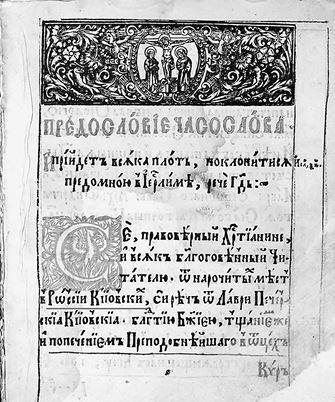 ПРЕДОСЛОВІЕ ЧАСОСЛОВА
Прїидетъ всѧка плоть, поклонитисѧ
предомною в Іерлимѣ, рече Гдь:
Сѐ, правовѣрный Хрⷭ҇тїанине,
и всѧкъ благоговѣнный Чи-
тателю. ѿ нарочитыⷯ мѣстъ
в Рѡссїи Кїѡвскиⷯ, сирѣчъ ѿ Лаври Печер-
скїѧ Кїѡвскїѧ. блгⷣтїю Бжїею, тщанїемже
и попеченїемъ Преподобнѣйшаго в ѿцехъ
Кѵръ